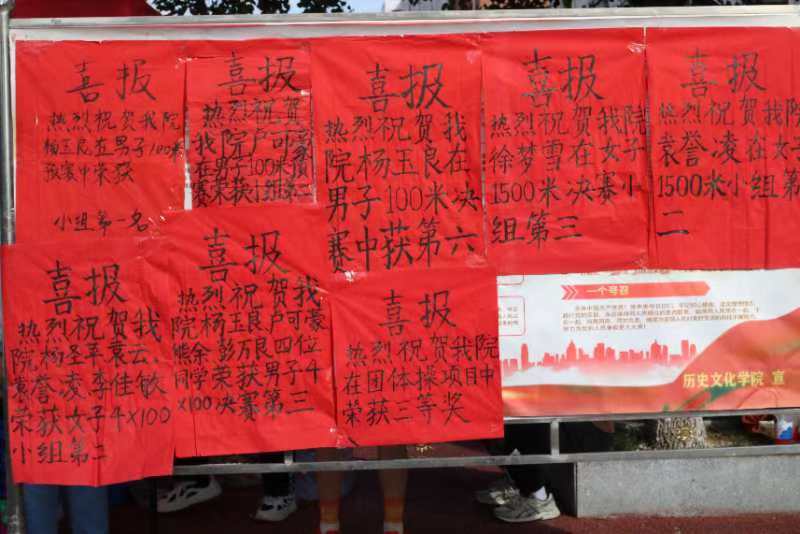 喜报
热烈祝贺我院
杨玉良在男子100米
预赛中荣获
小组第一名
喜报
热烈祝贺
我院卢可豪
在男子100米预
赛荣获小组第二
喜报
热烈祝贺我
院杨玉良在
男子100米决
赛中获第六
喜报
热烈祝贺我院
徐梦雪在女子
1500米决赛小
组第三
喜报
热烈祝贺我院
袁誉凌在女子
1500米小组第
二
喜报
热烈祝贺我
院杨圣苹袁云
袁誉凌李佳敏
荣获女子4×100
小组第二
喜报
热烈祝贺我
院杨玉良卢可豪
熊余彭万良四位
同学荣获男子4
×100决赛第三
喜报
热烈祝贺我院
在团体操项目中
荣获三等奖
一个号召
历史文化学院 宣